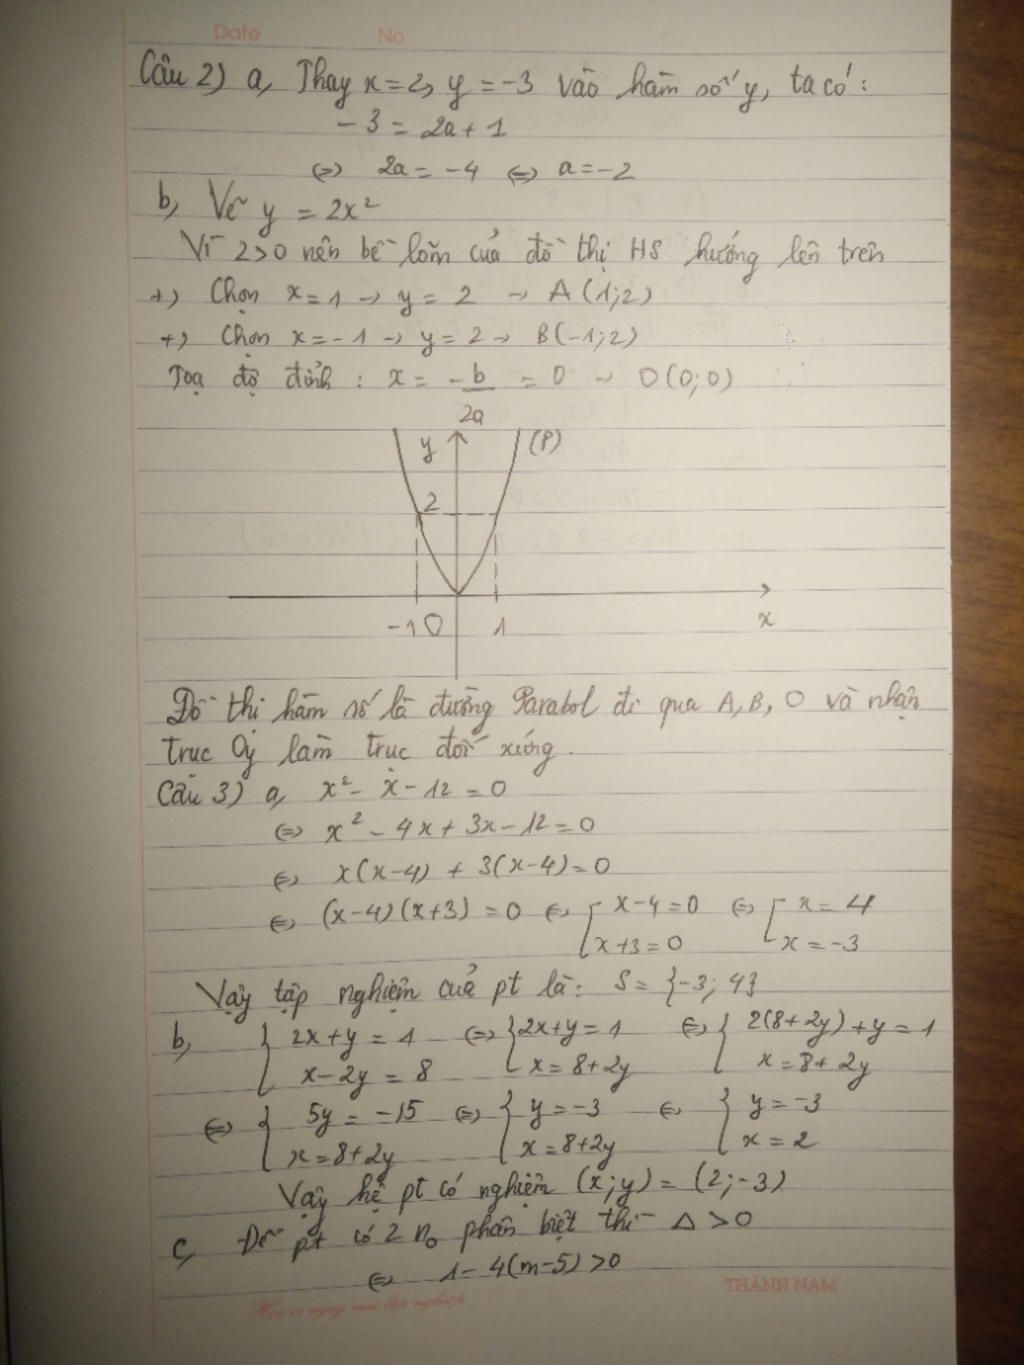 Date No
Câu 2) a, Thay x = 2, y = -3 vào hàm số y, ta có:
-3 = 2a + 1
⇔ 2a = -4 ⇔ a = -2
b, Vẽ y = 2x²
Vì 2>0 nên bề lõm của đồ thị HS hướng lên trên
+, Chọn x = 1 → y = 2 → A(1;2)
+, Chọn x = -1 → y = 2 → B(-1;2)
Toạ độ đỉnh : x = -b/2a = 0 → O(0;0)
y (P)
2
-1 O 1 x
Đồ thị hàm số là đường Parabol đi qua A, B, O và nhận
trục Oy làm trục đối xứng.
Câu 3) a, x² - x - 12 = 0
⇔ x² - 4x + 3x - 12 = 0
⇔ x(x-4) + 3(x-4) = 0
⇔ (x-4)(x+3) = 0 ⇔ [ x-4 = 0 ⇔ [ x = 4
x+3 = 0 x = -3
Vậy tập nghiệm của pt là: S = {-3; 4}
b, { 2x + y = 1 ⇔ { 2x + y = 1 ⇔ { 2(8+2y) + y = 1
x - 2y = 8 x = 8 + 2y x = 8 + 2y
⇔ { 5y = -15 ⇔ { y = -3 ⇔ { y = -3
x = 8 + 2y x = 8 + 2y x = 2
Vậy hệ pt có nghiệm (x;y) = (2;-3)
c, Để pt có 2 no phân biệt thì Δ > 0
⇔ 1 - 4(m-5) > 0
THÀNH NAM